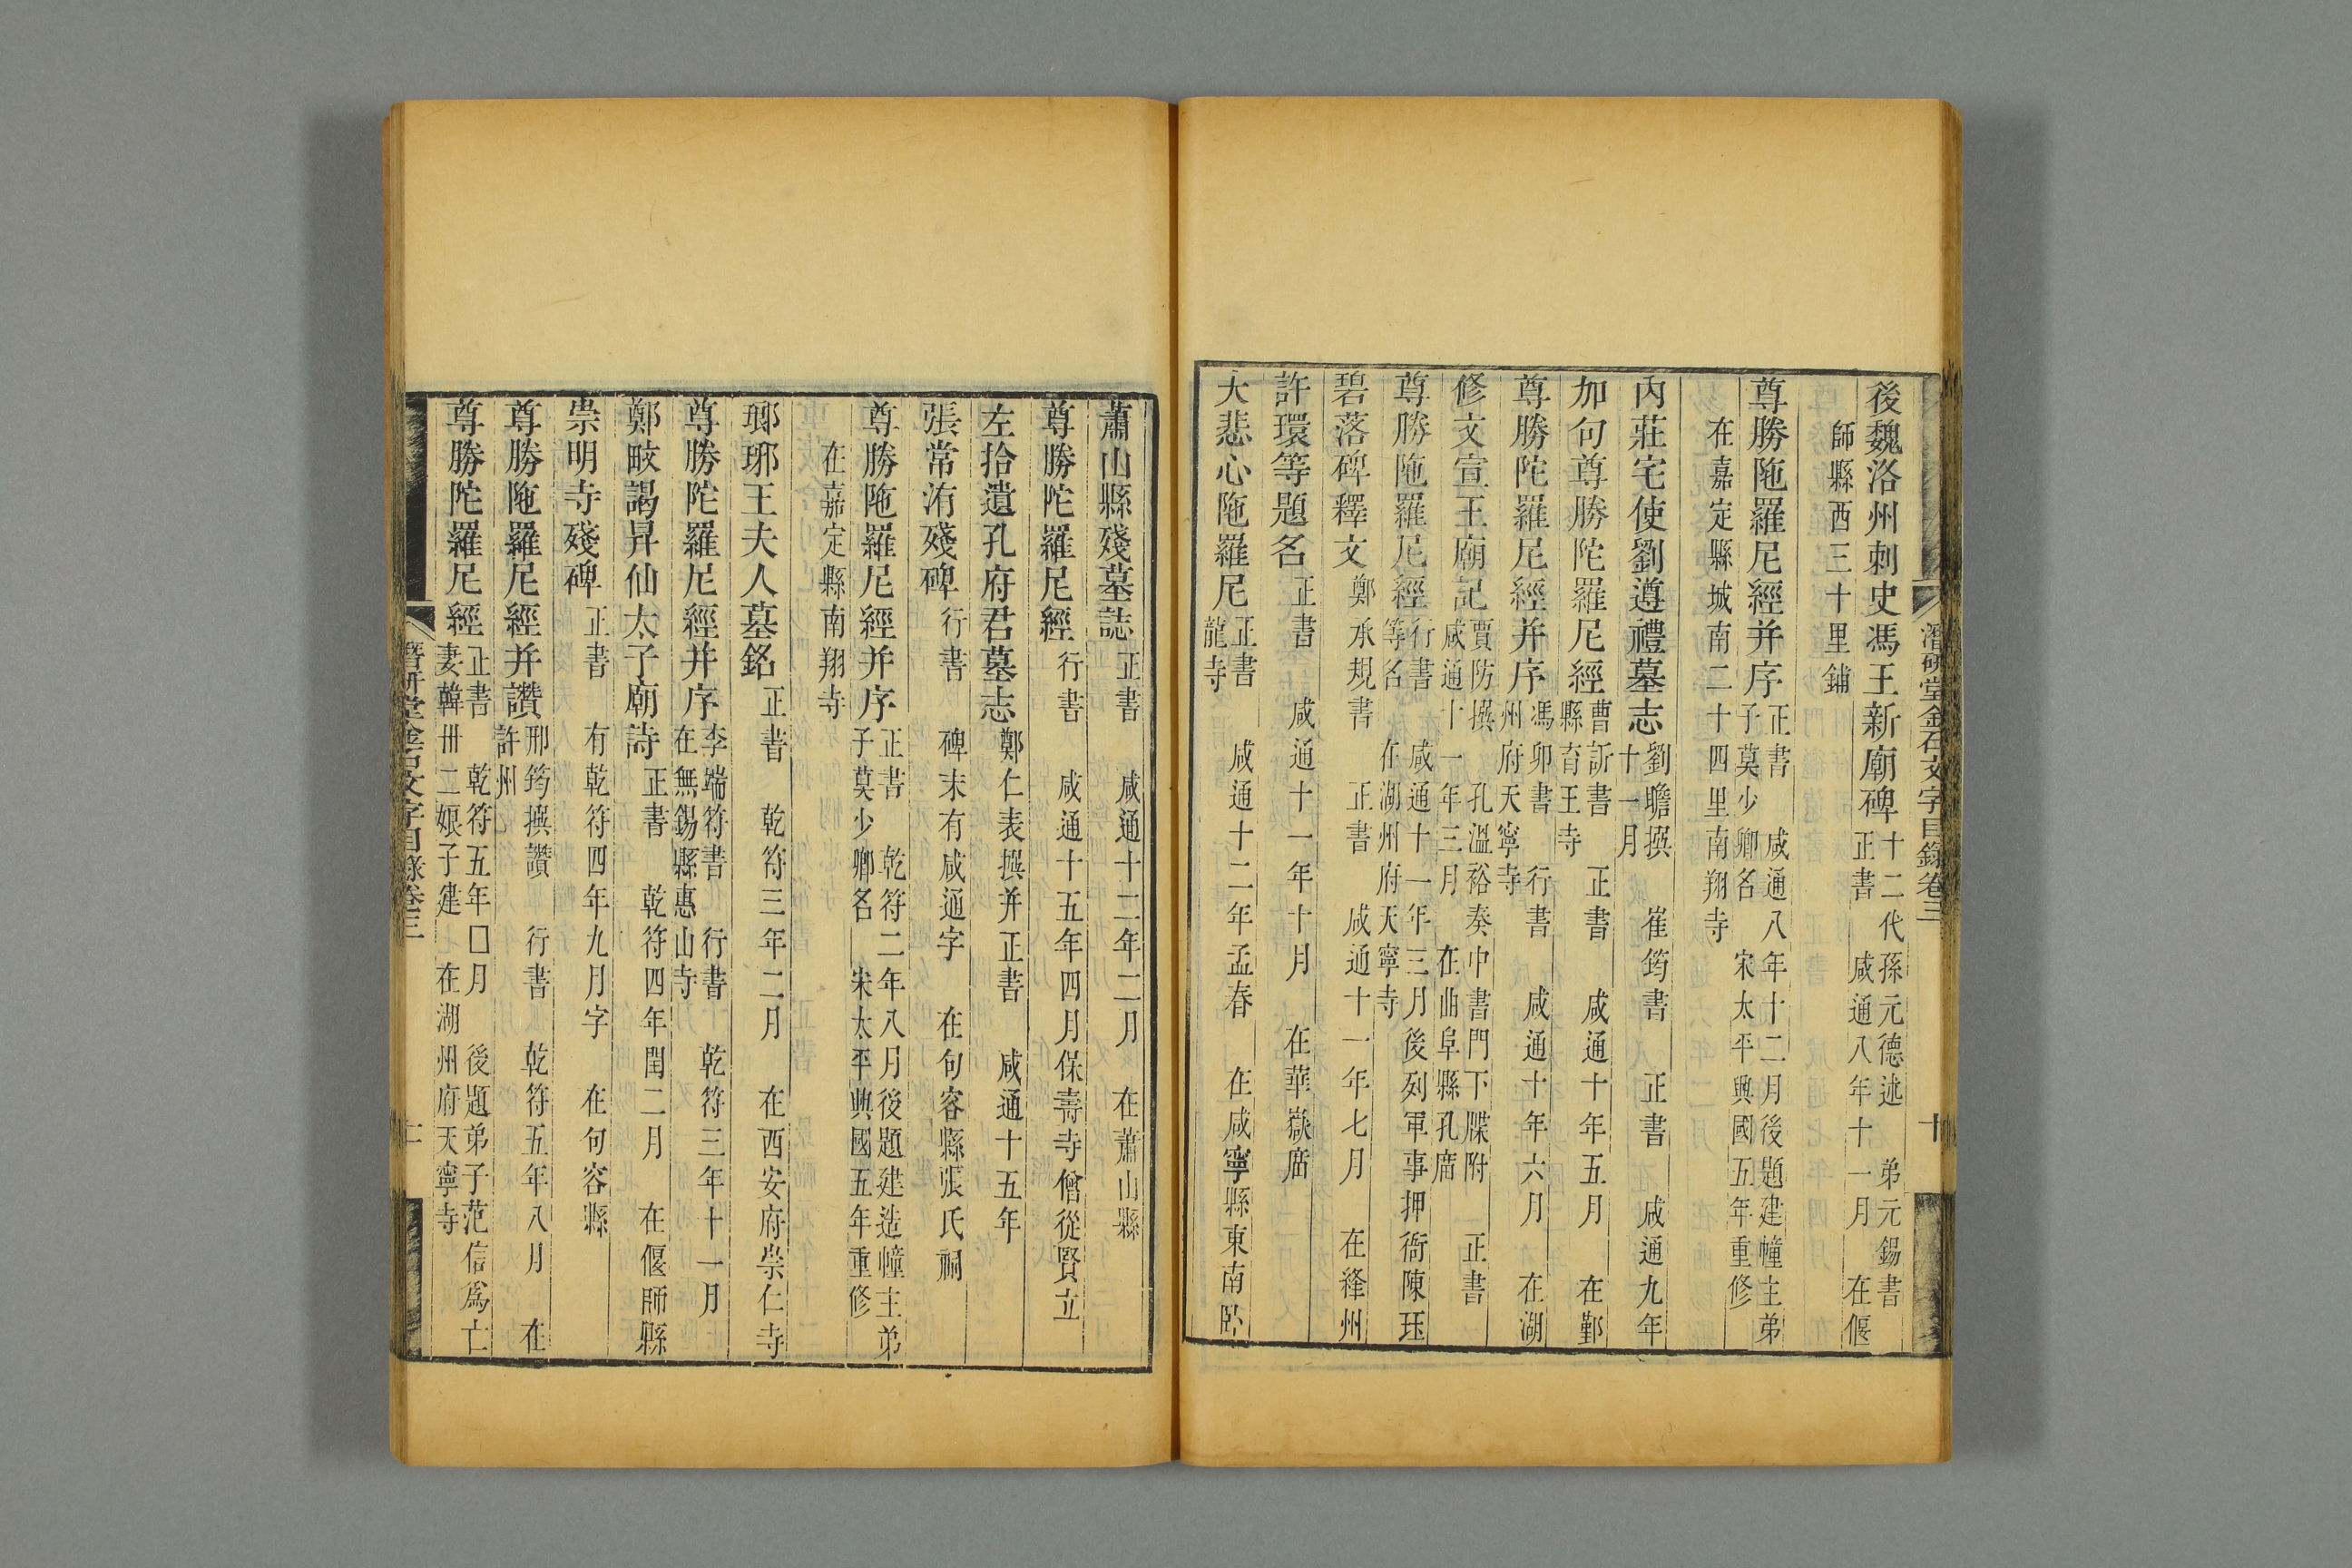 潛研堂金石文字目錄卷三
十
後魏洛州刺史馮王新廟碑 十二代孫元德述 弟元錫書
正書 咸通八年十一月 在偃
師縣西三十里鋪
尊勝陁羅尼經并序 正書 咸通八年十二月後題建幢主弟
子莫少卿名 宋太平興國五年重修
在嘉定縣城南二十四里南翔寺
内莊宅使劉遵禮墓志 劉瞻撰 崔筠書 正書 咸通九年
十一月
加句尊勝陀羅尼經 曹訢書 正書 咸通十年五月 在鄞
縣育王寺
尊勝陀羅尼經并序 馮卯書 行書 咸通十年六月 在湖
州府天寧寺
修文宣王廟記 賈防撰 孔溫裕奏中書門下牒附 正書
咸通十一年三月 在曲阜縣孔廟
尊勝陁羅尼經 行書 咸通十一年三月後列軍事押衙陳珏
等名 在湖州府天寧寺
碧落碑釋文 鄭承規書 正書 咸通十一年七月 在絳州
許環等題名 正書 咸通十一年十月 在華嶽廟
大悲心陁羅尼 正書 咸通十二年孟春 在咸寧縣東南臥
龍寺
蕭山縣殘墓誌 正書 咸通十二年二月 在蕭山縣
尊勝陀羅尼經 行書 咸通十五年四月保壽寺僧從賢立
左拾遺孔府君墓志 鄭仁表撰并正書 咸通十五年
張常洧殘碑 行書 碑末有咸通字 在句容縣張氏祠
尊勝陁羅尼經并序 正書 乾符二年八月後題建造幢主弟
子莫少卿名 宋太平興國五年重修
在嘉定縣南翔寺
瑯琊王夫人墓銘 正書 乾符三年二月 在西安府崇仁寺
尊勝陀羅尼經并序 李端符書 行書 乾符三年十一月
在無錫縣惠山寺
鄭畋謁昇仙太子廟詩 正書 乾符四年閏二月 在偃師縣
崇明寺殘碑 正書 有乾符四年九月字 在句容縣
尊勝陁羅尼經并讚 邢筠撰讚 行書 乾符五年八月 在
許州
尊勝陀羅尼經 正書 乾符五年□月 後題弟子范信爲亡
妻韓卅二娘子建 在湖州府天寧寺
潛研堂金石文字目錄卷三